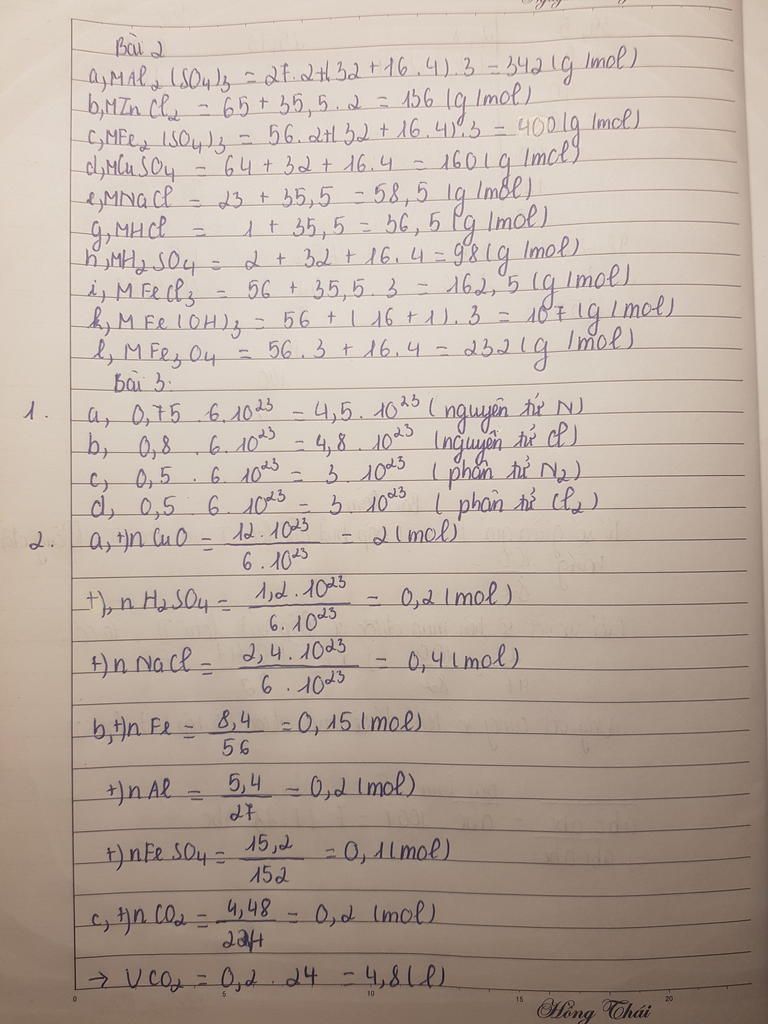 Bài 2
a, MAl2(SO4)3 = 27.2+(32 + 16.4).3 = 342 (g/mol)
b, MZnCl2 = 65 + 35,5.2 = 136 (g/mol)
c, MFe2(SO4)3 = 56.2+(32 + 16.4).3 = 400 (g/mol)
d, MCuSO4 = 64 + 32 + 16.4 = 160 (g/mol)
e, MNaCl = 23 + 35,5 = 58,5 (g/mol)
g, MHCl = 1 + 35,5 = 36,5 (g/mol)
h, MH2SO4 = 2 + 32 + 16.4 = 98 (g/mol)
i, MFeCl3 = 56 + 35,5.3 = 162,5 (g/mol)
k, MFe(OH)3 = 56 + (16 + 1).3 = 107 (g/mol)
l, MFe3O4 = 56.3 + 16.4 = 232 (g/mol)
Bài 3:
1. a, 0,75 . 6.10²³ = 4,5.10²³ (nguyên tử N)
b, 0,8 . 6.10²³ = 4,8.10²³ (nguyên tử Cl)
c, 0,5 . 6.10²³ = 3.10²³ (phân tử N2)
d, 0,5 6.10²³ = 3.10²³ (phân tử Cl2)
2. a, +) n CuO = 12.10²³ / 6.10²³ = 2 (mol)
+), n H2SO4 = 1,2.10²³ / 6.10²³ = 0,2 (mol)
+) n NaCl = 2,4.10²³ / 6.10²³ = 0,4 (mol)
b, +) n Fe = 8,4 / 56 = 0,15 (mol)
+) n Al = 5,4 / 27 = 0,2 (mol)
+) n FeSO4 = 15,2 / 152 = 0,1 (mol)
c, +) n CO2 = 4,48 / 22,4 = 0,2 (mol)
→ VCO2 = 0,2 . 24 = 4,8 (l)
0 5 10 15 20
Hồng Thái